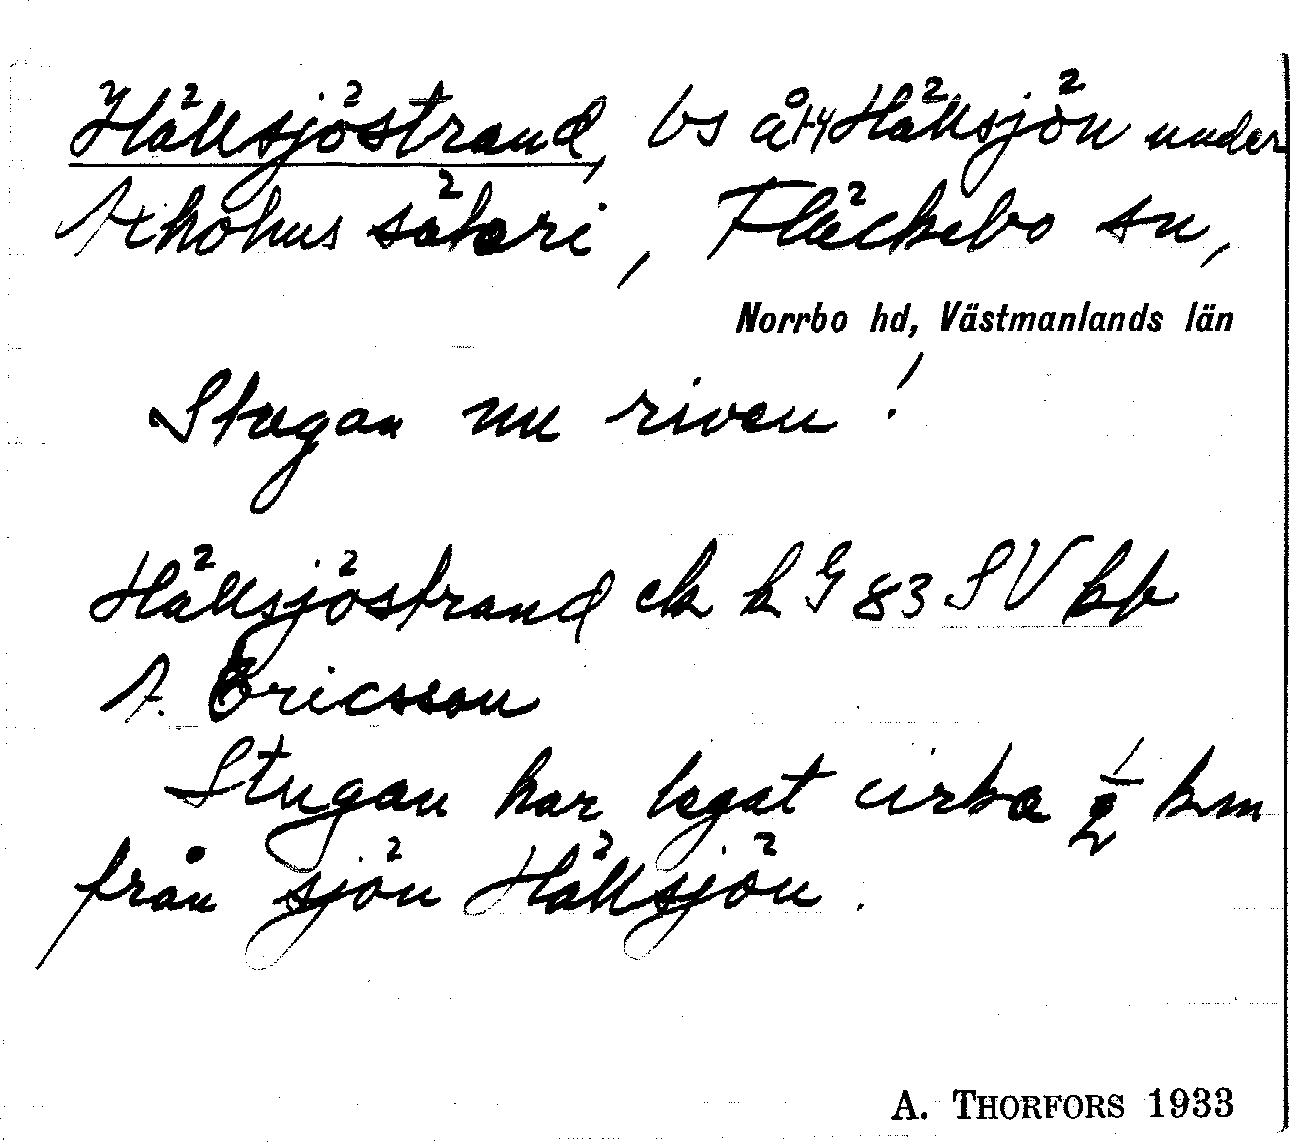 Hällsjöstrand, bs åt Hällsjön under
Åkohus säteri, Fläckebo sn,
Norrbo hd, Västmanlands län
Stugan nu riven!
Hällsjöstrand ek k G 83 SV bb
A. Ericsson
Stugan har legat cirka ½ km
från sjön Hällsjön.
A. THORFORS 1933